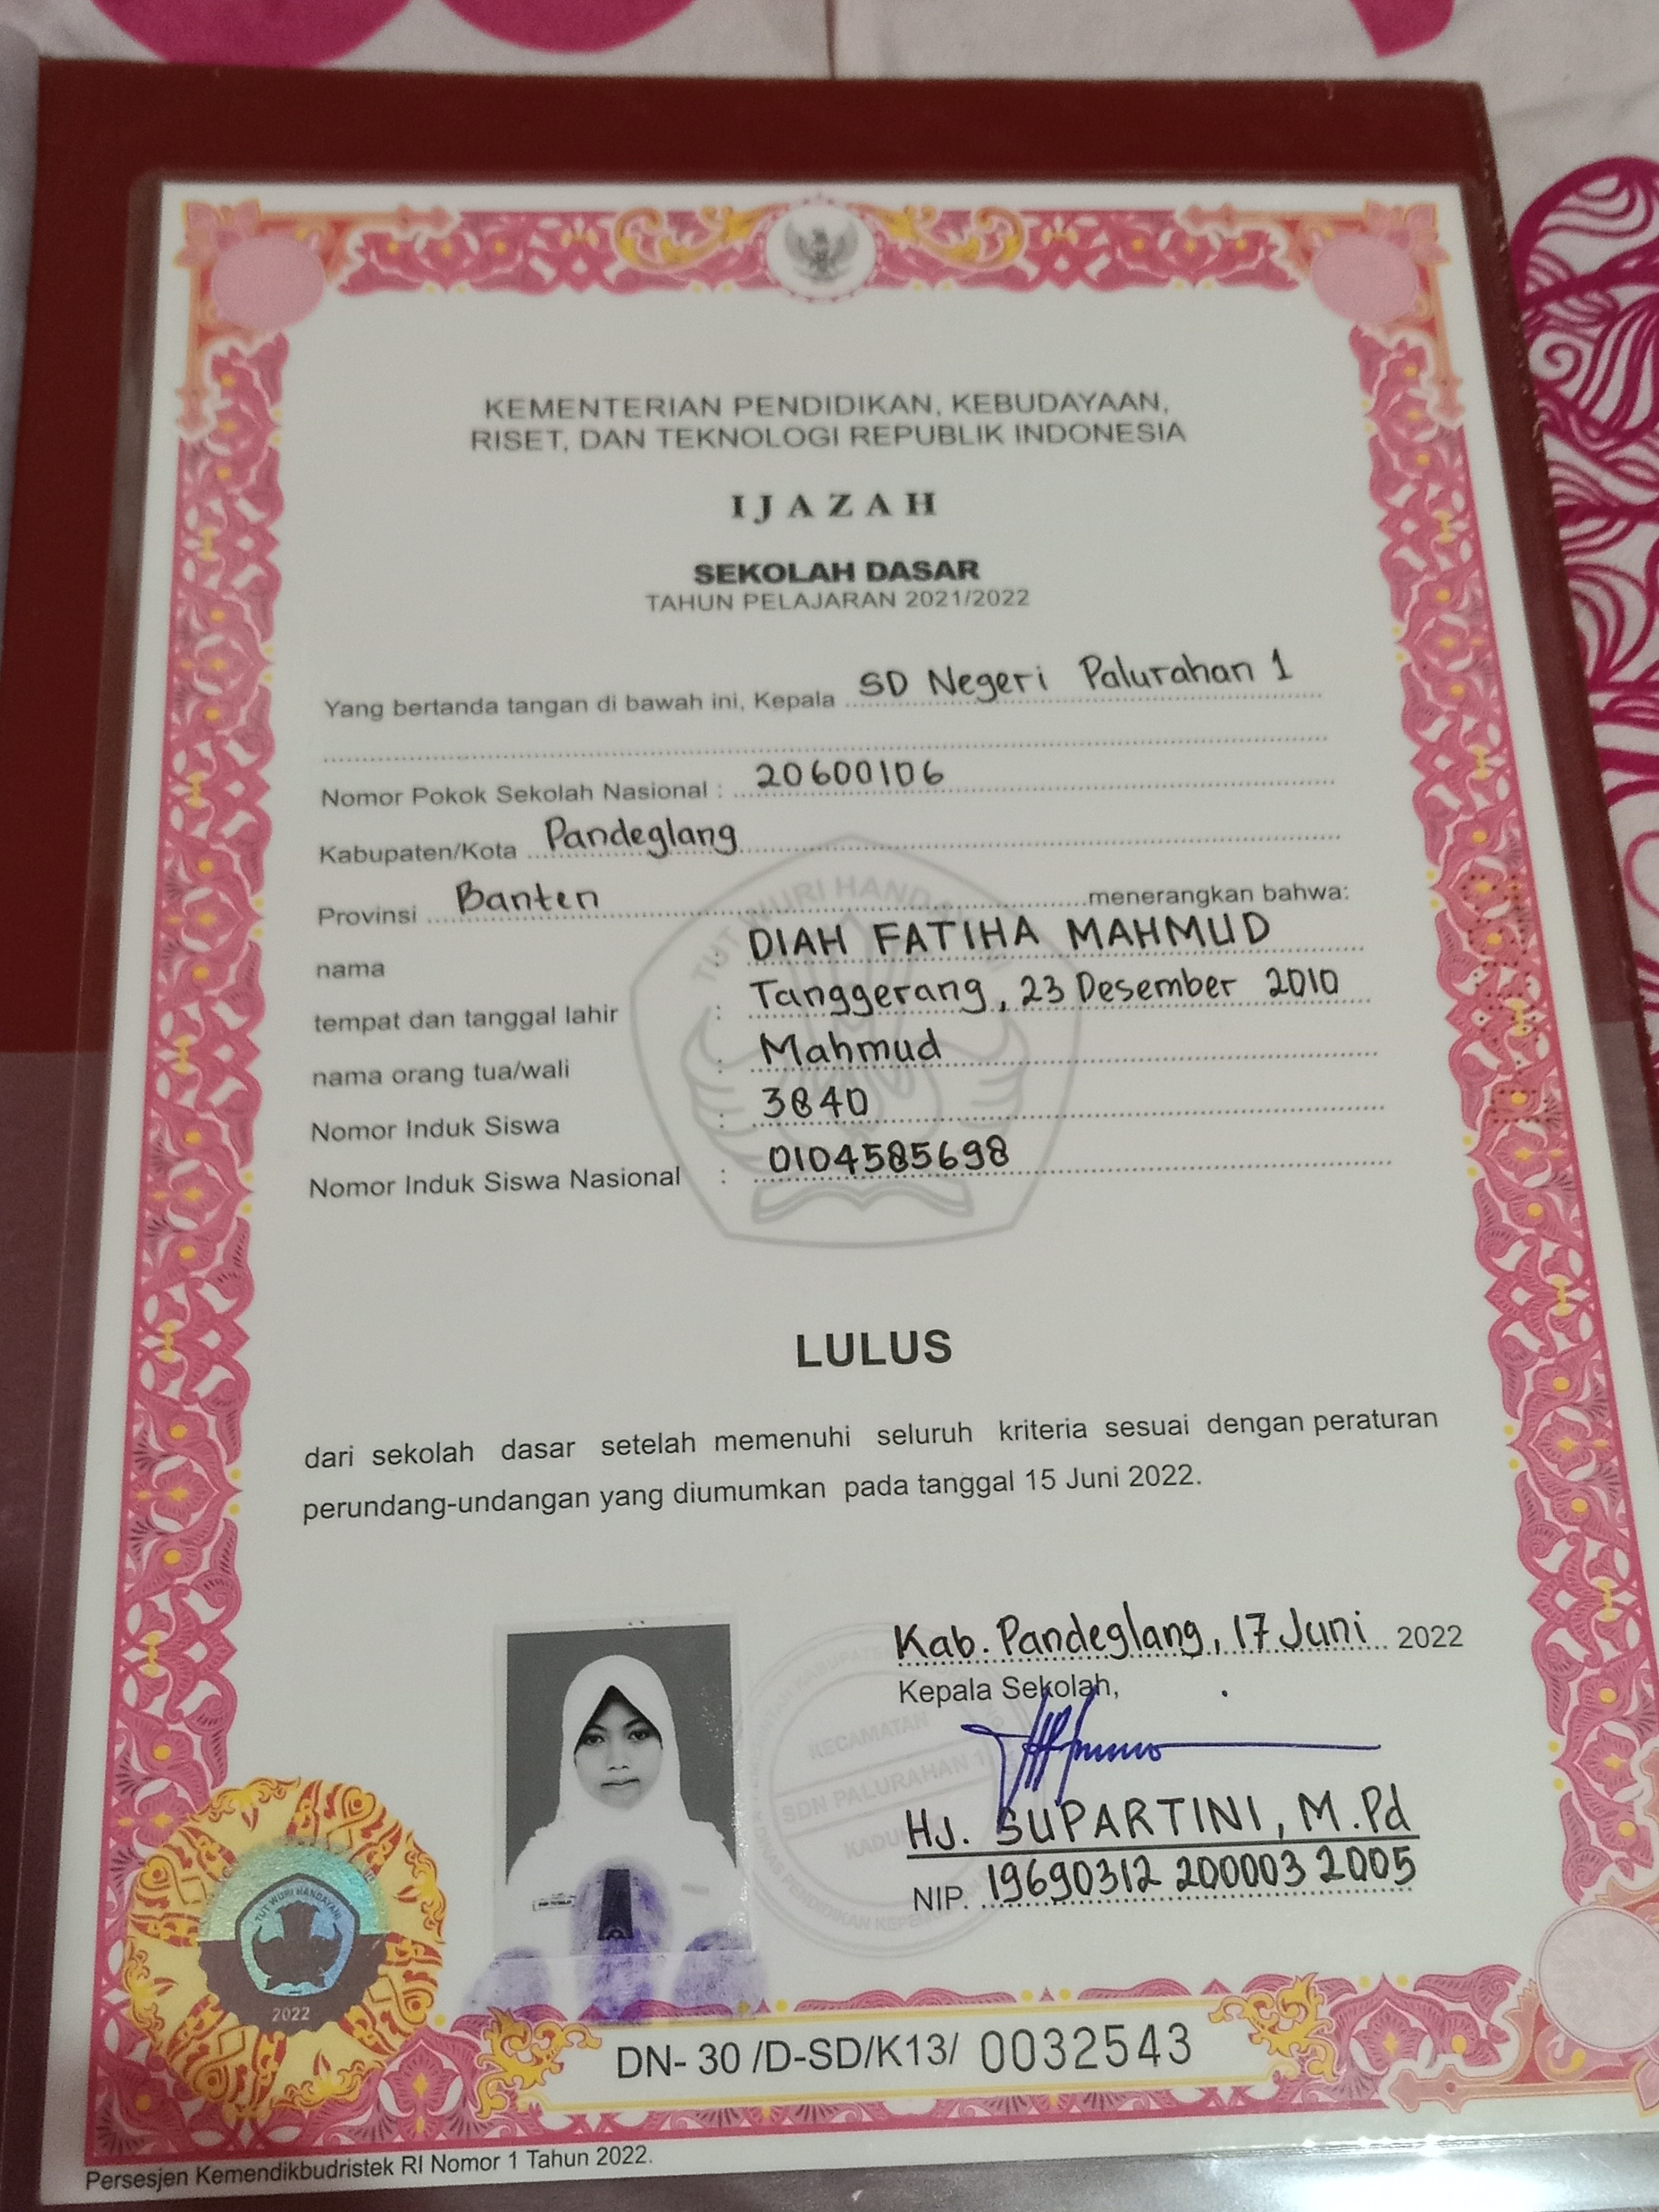 KEMENTERIAN PENDIDIKAN, KEBUDAYAAN,
RISET, DAN TEKNOLOGI REPUBLIK INDONESIA
IJAZAH
SEKOLAH DASAR
TAHUN PELAJARAN 2021/2022
Yang bertanda tangan di bawah ini, Kepala SD Negeri Palurahan 1
Nomor Pokok Sekolah Nasional : 20600106
Kabupaten/Kota Pandeglang
Provinsi Banten menerangkan bahwa:
nama : DIAH FATIHA MAHMUD
tempat dan tanggal lahir : Tanggerang, 23 Desember 2010
nama orang tua/wali : Mahmud
Nomor Induk Siswa : 3840
Nomor Induk Siswa Nasional : 0104585698
TUT WURI HANDAYANI
LULUS
dari sekolah dasar setelah memenuhi seluruh kriteria sesuai dengan peraturan
perundang-undangan yang diumumkan pada tanggal 15 Juni 2022.
Kab. Pandeglang, 17 Juni 2022
Kepala Sekolah,
KECAMATAN
SDN PALURAHAN 1
HJ. SUPARTINI, M.Pd
NIP. 19690312 200003 2005
TUT WURI HANDAYANI
2022
DN- 30 /D-SD/K13/ 0032543
Persesjen Kemendikbudristek RI Nomor 1 Tahun 2022.